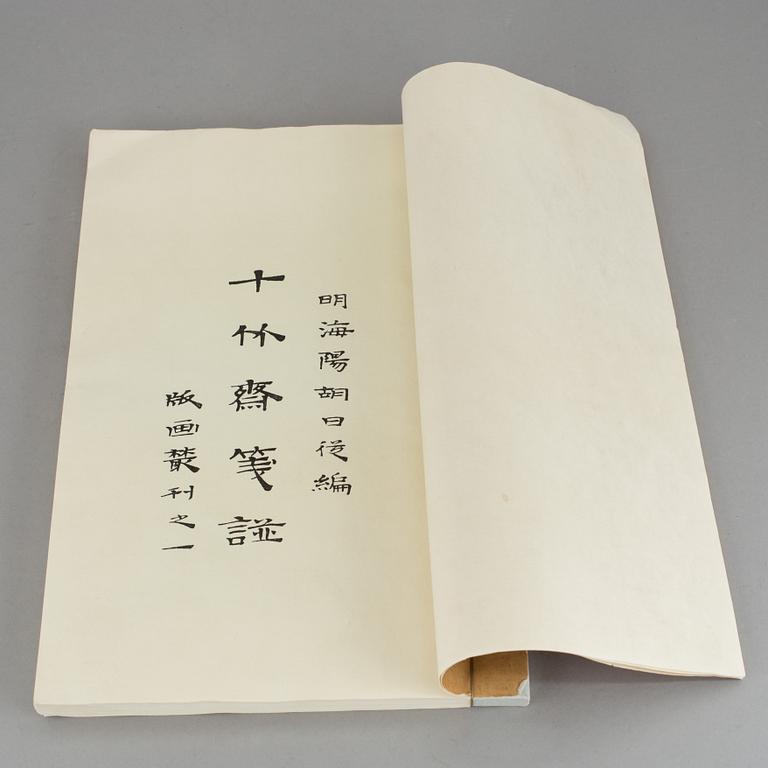 明海陽胡曰從編
十竹齋箋譜
版画叢刊之一